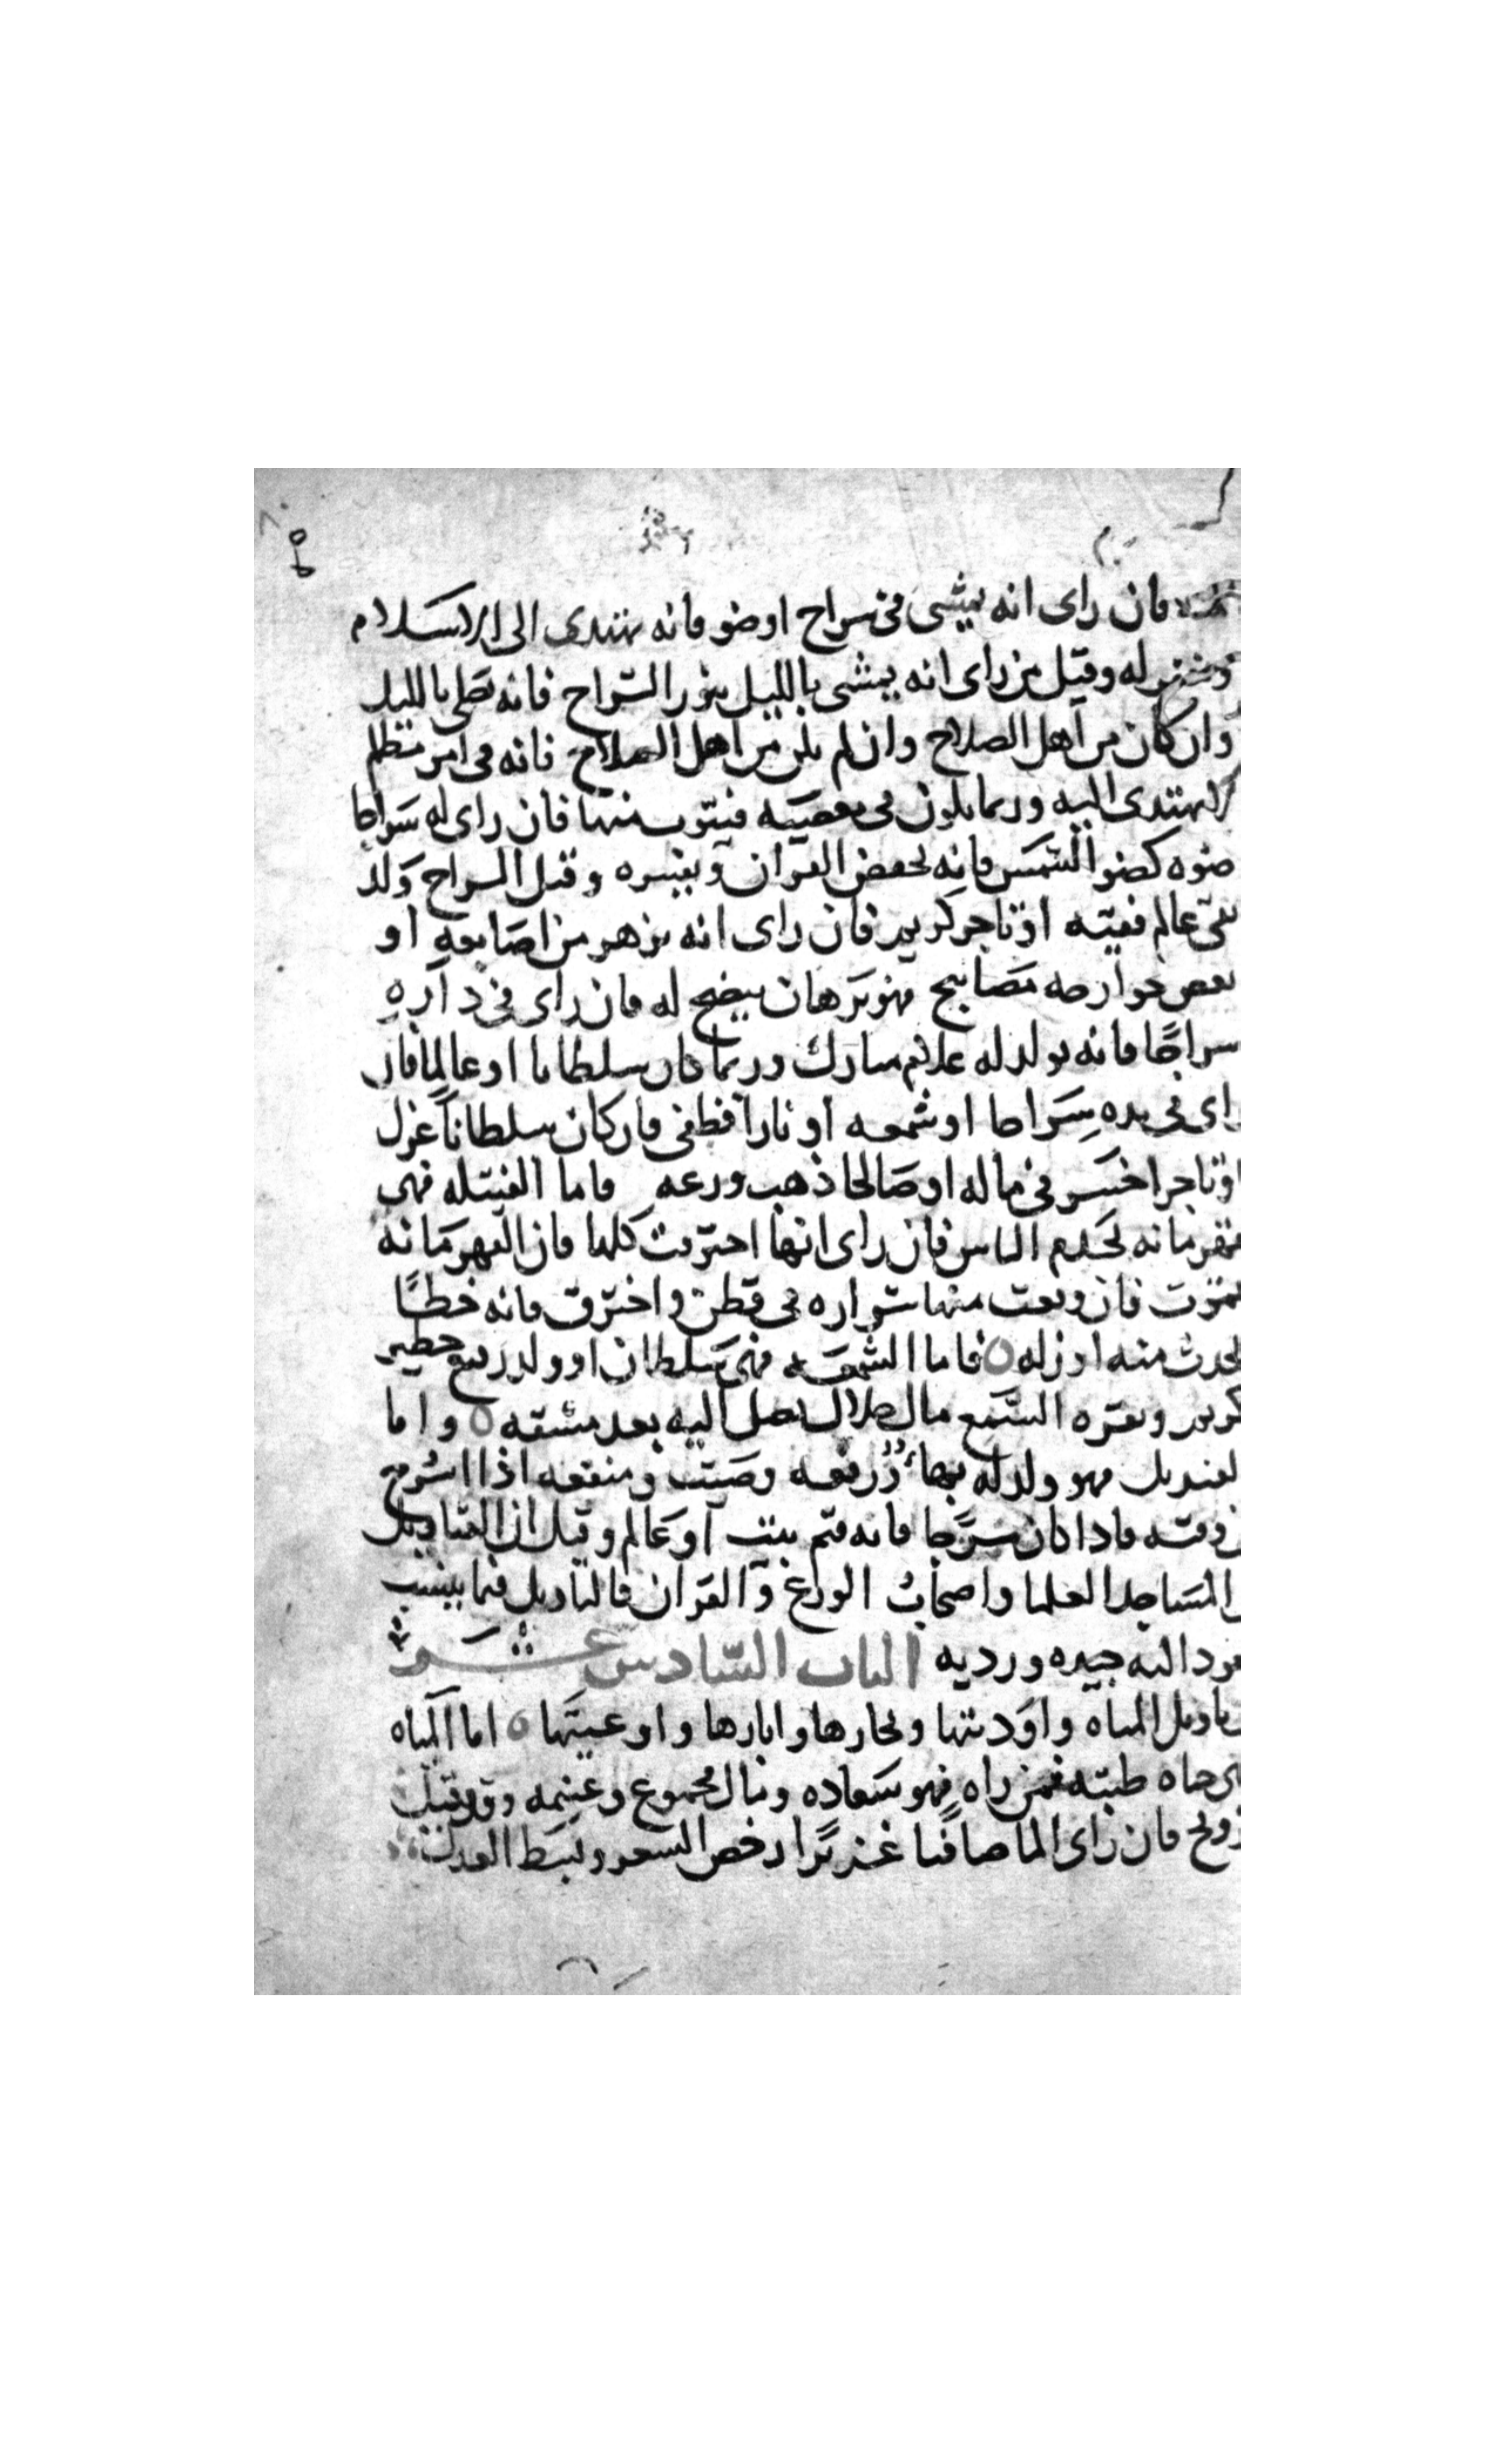 فان راى انه يمشى فى سراج او ضو فانه يهتدى الى الاسلام
له وقيل من راى انه يمشى بالليل بنور السراج فانه يصلى بالليل
وان كان من اهل الصلاح وان لم يكن من اهل الصلاح فانه فى امر مظلم
لا يهتدى اليه وربما يكون فى معصيه فيتوب منها فان راى له سراجا
ضوه كضو الشمس فانه يحفض القران ويفسره وقيل السراج ولد
تقى عالم فقيه او تاجر كريم فان راى انه يزهر من اصابعه او
بعض جوارحه مصابيح فهو برهان يضح له فان راى فى داره
سراجا فانه يولد له غلام مبارك وربما كان سلطانا او عالما فان
راى فى يده سراجا او شمعه او نارا فطفى فان كان سلطانا عزل
او تاجرا خسر فى ماله او صالحا ذهب ورعه فاما الفتيله فهى
قهرمانه تخدم الناس فان راى انها احترقت كلها فان القهرمانه
تموت فان وقعت منها شراره فى قطن واحترق فانه خطا
يحدث منه او زله فاما الشمعه فهى سلطان او ولد رفيع خطير
كريم ونقره الشمع مال حلال يصل اليه بعد مشقه واما
القنديل فهو ولد له بها ورفعه وصيت ومنفعه اذا اسرج
فى وقته فاذا كان مسرجا فانه قيم بيت او عالم وقيل ان القناديل
فى المساجد العلما واصحاب الورع والقران فالتاويل فيما ينسب
يعود اليه جيده ورديه الباب السادس عشر
فى تاويل المياه واوديتها وبحارها وابارها واوعيتها اما المياه
فهى حياه طيبه فمن راه فهو سعاده ومال مجموع وغنيمه وقد قيل
تزويج فان راى الما صافيا غزيرا رخص السعر وبسط العدل